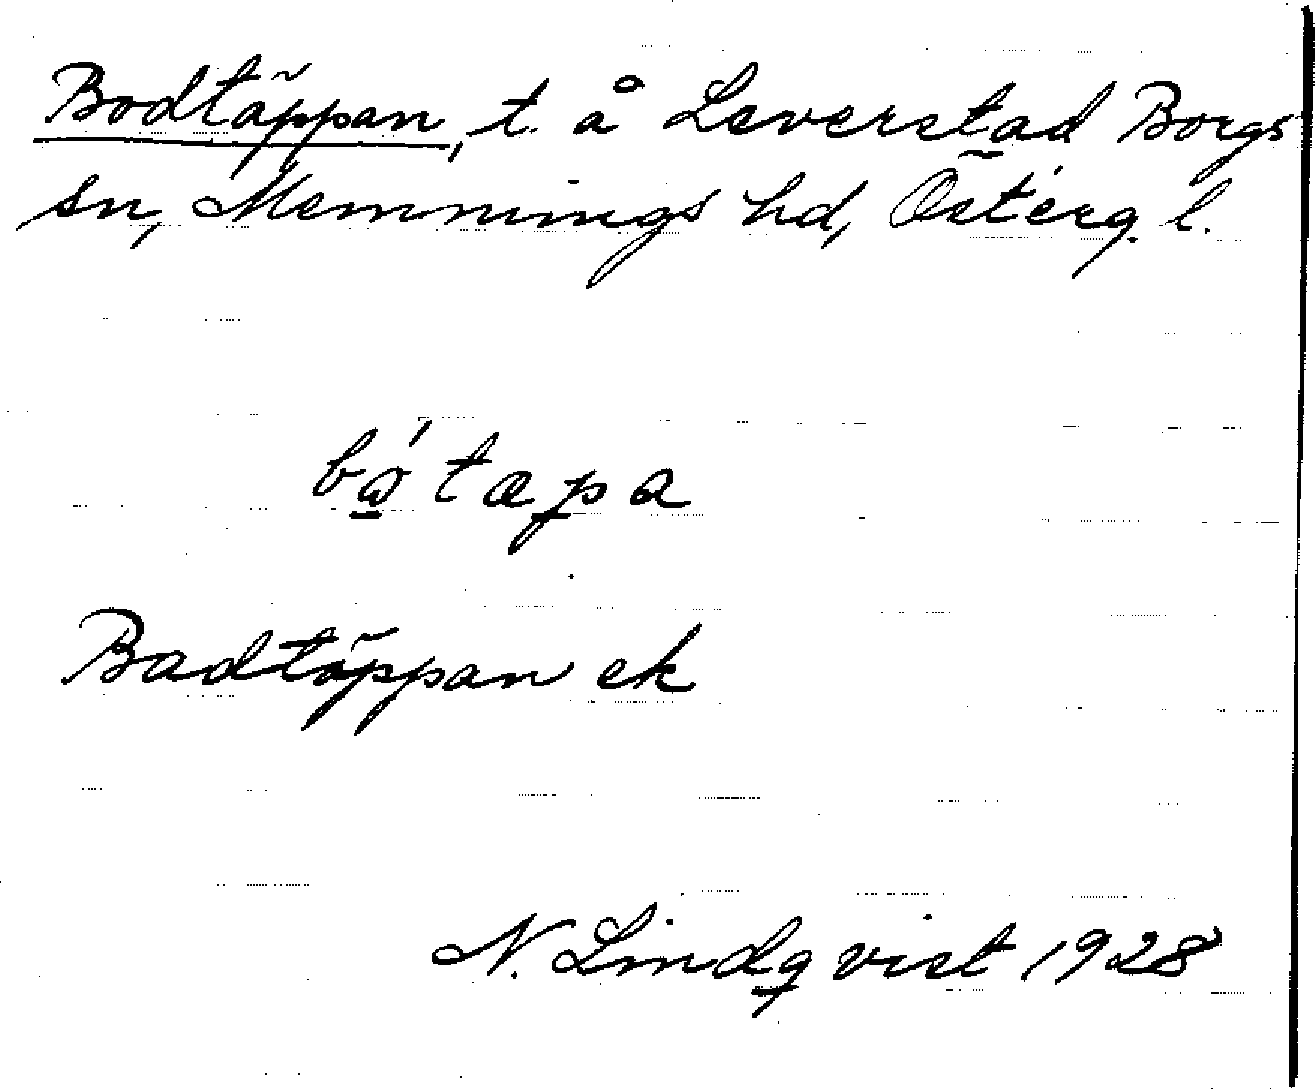 Bodtäppan, t. å Leverstad Borgs
sn, Memmings hd, Österg. l.
bώ̲tæpa
Badtäppan ek
N. Lindqvist 1928